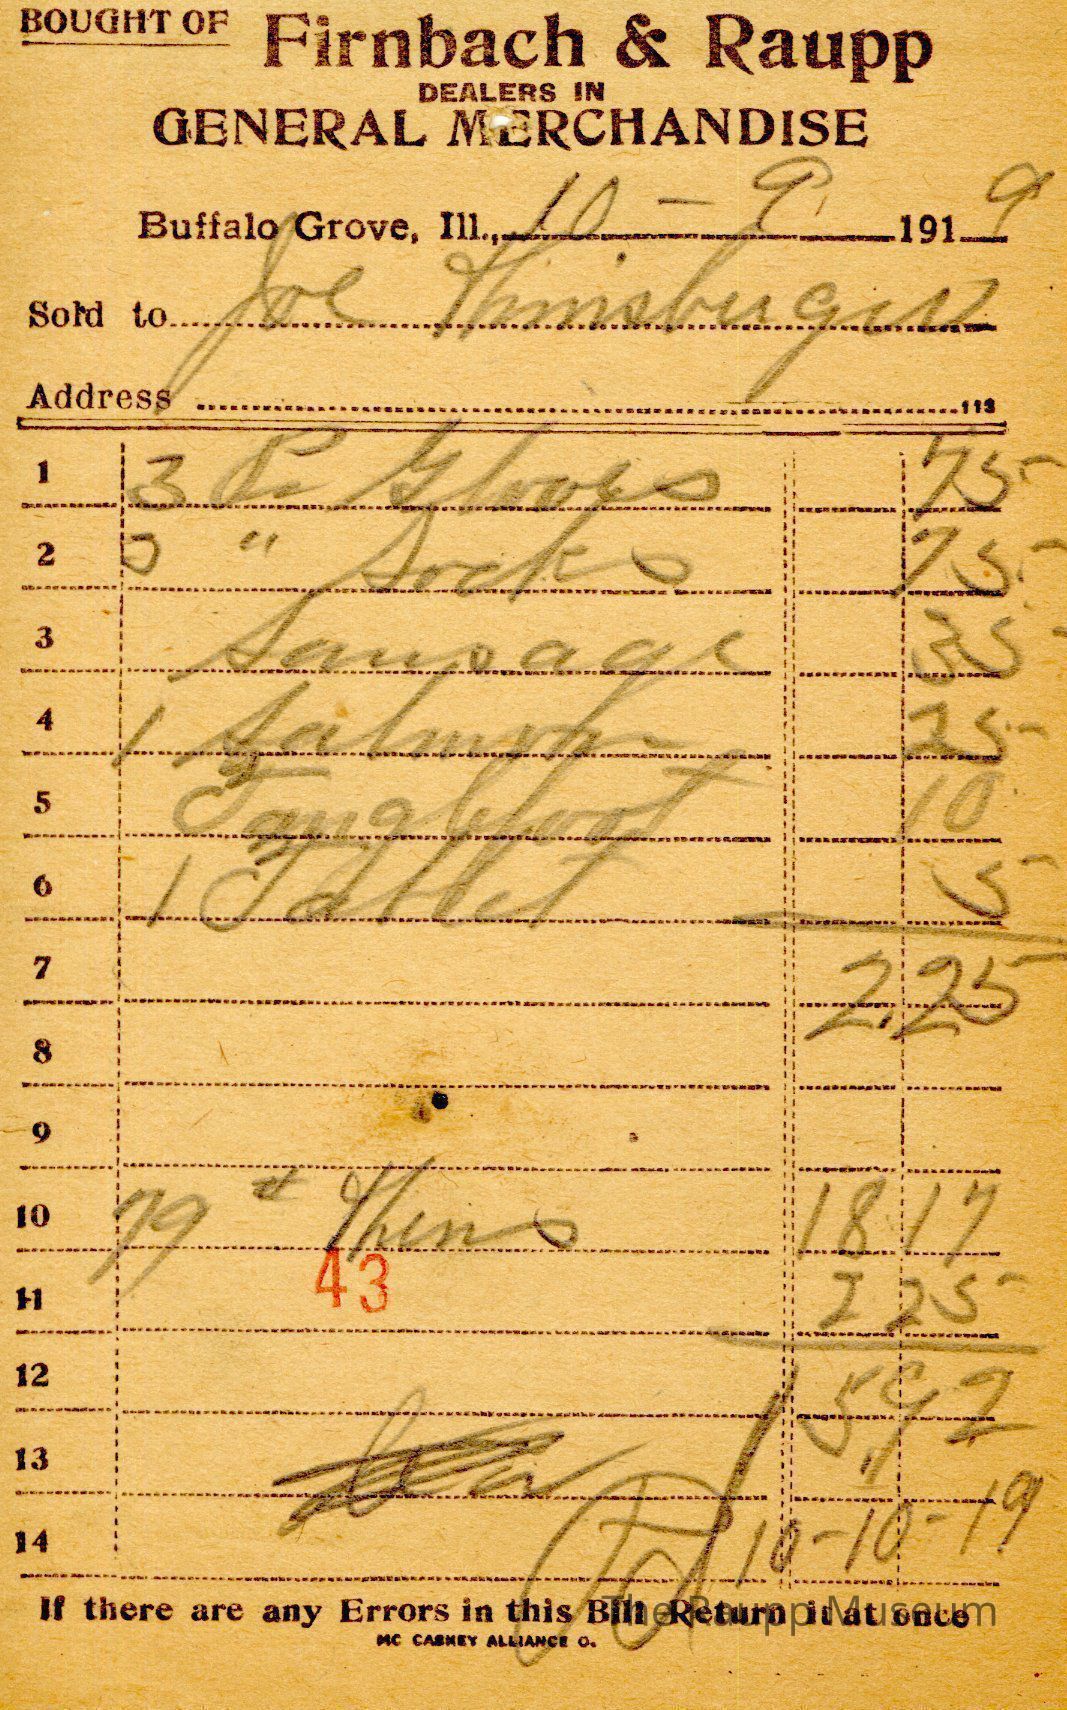 BOUGHT OF Firnbach & Raupp
DEALERS IN
GENERAL MERCHANDISE
Buffalo Grove, Ill., 10 - 9 1919
Sold to Joe
Address 113
1 3 Pr Gloves 75
2 3 " Socks 75
3 Sausage 35
4 1 Salmon 25
5 Tanglefoot 10
6 1 Tablet 5
7 2.25
8
9
10 79 # Hens 18 17
43
11 2 25
12 15 92
13
14 Pd 10-10-19
If there are any Errors in this Bill Return it at once
The Raupp Museum
MC CASKEY ALLIANCE O.